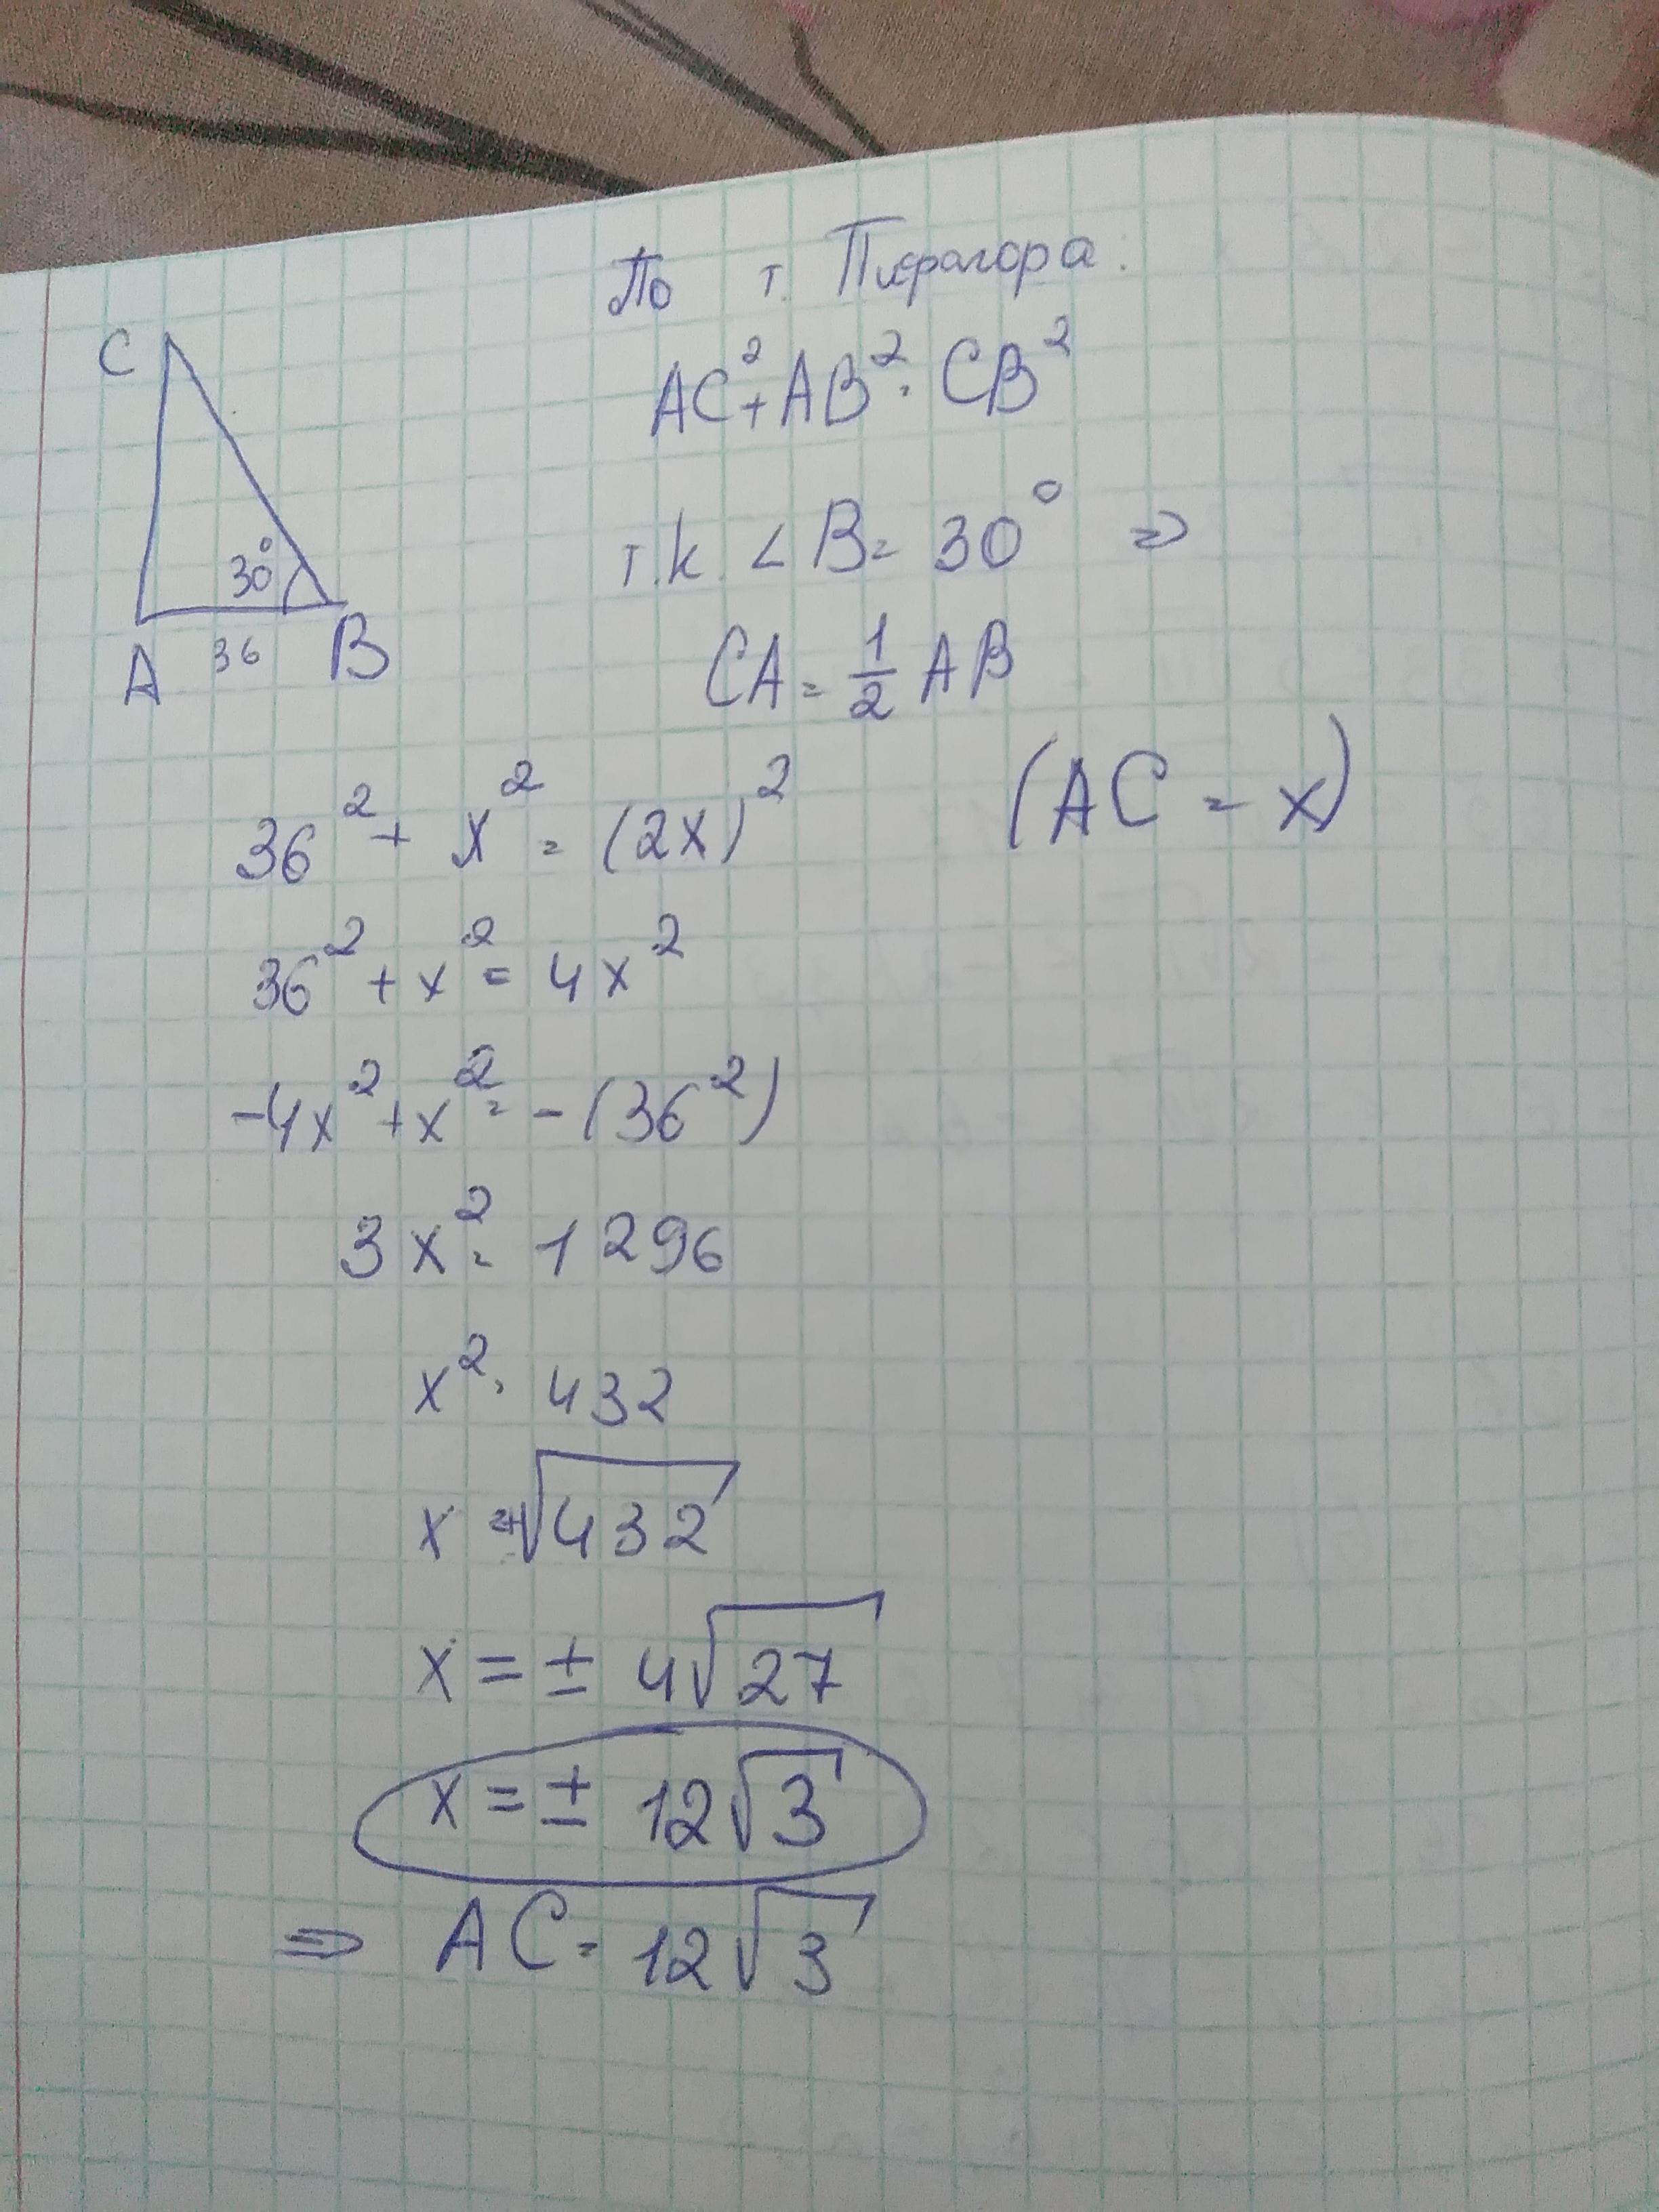 По т. Пифагора:
AC² + AB² = CB²
т.к. ∠B = 30° ⇒
CA = 1/2 AB
C
30°
A 36 B
36² + x² = (2x)² (AC = x)
36² + x² = 4x²
-4x² + x² = -(36²)
3x² = 1296
x² = 432
x = ±√432
x = ± 4√27
x = ± 12√3
⇒ AC = 12√3